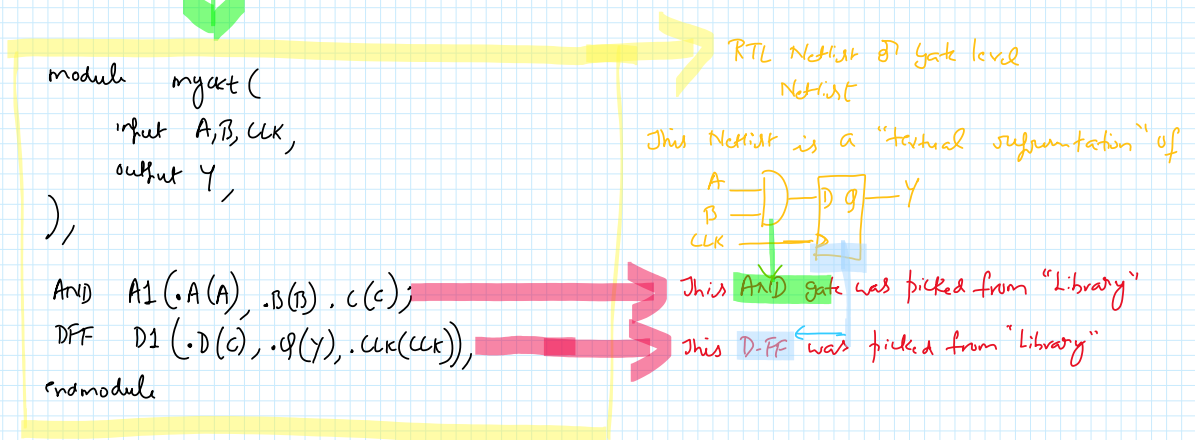 module myckt (
input A, B, CLK,
output Y,
),
AND A1 (.A(A), .B(B). C(C);
DFF D1 (.D(C), .Q(Y), .CLK(CLK)),
endmodule
RTL Netlist or gate level
Netlist
This Netlist is a "textual representation" of
A
B
CLK
D Q
Y
This AND gate was picked from "Library"
This D-FF was picked from "Library"